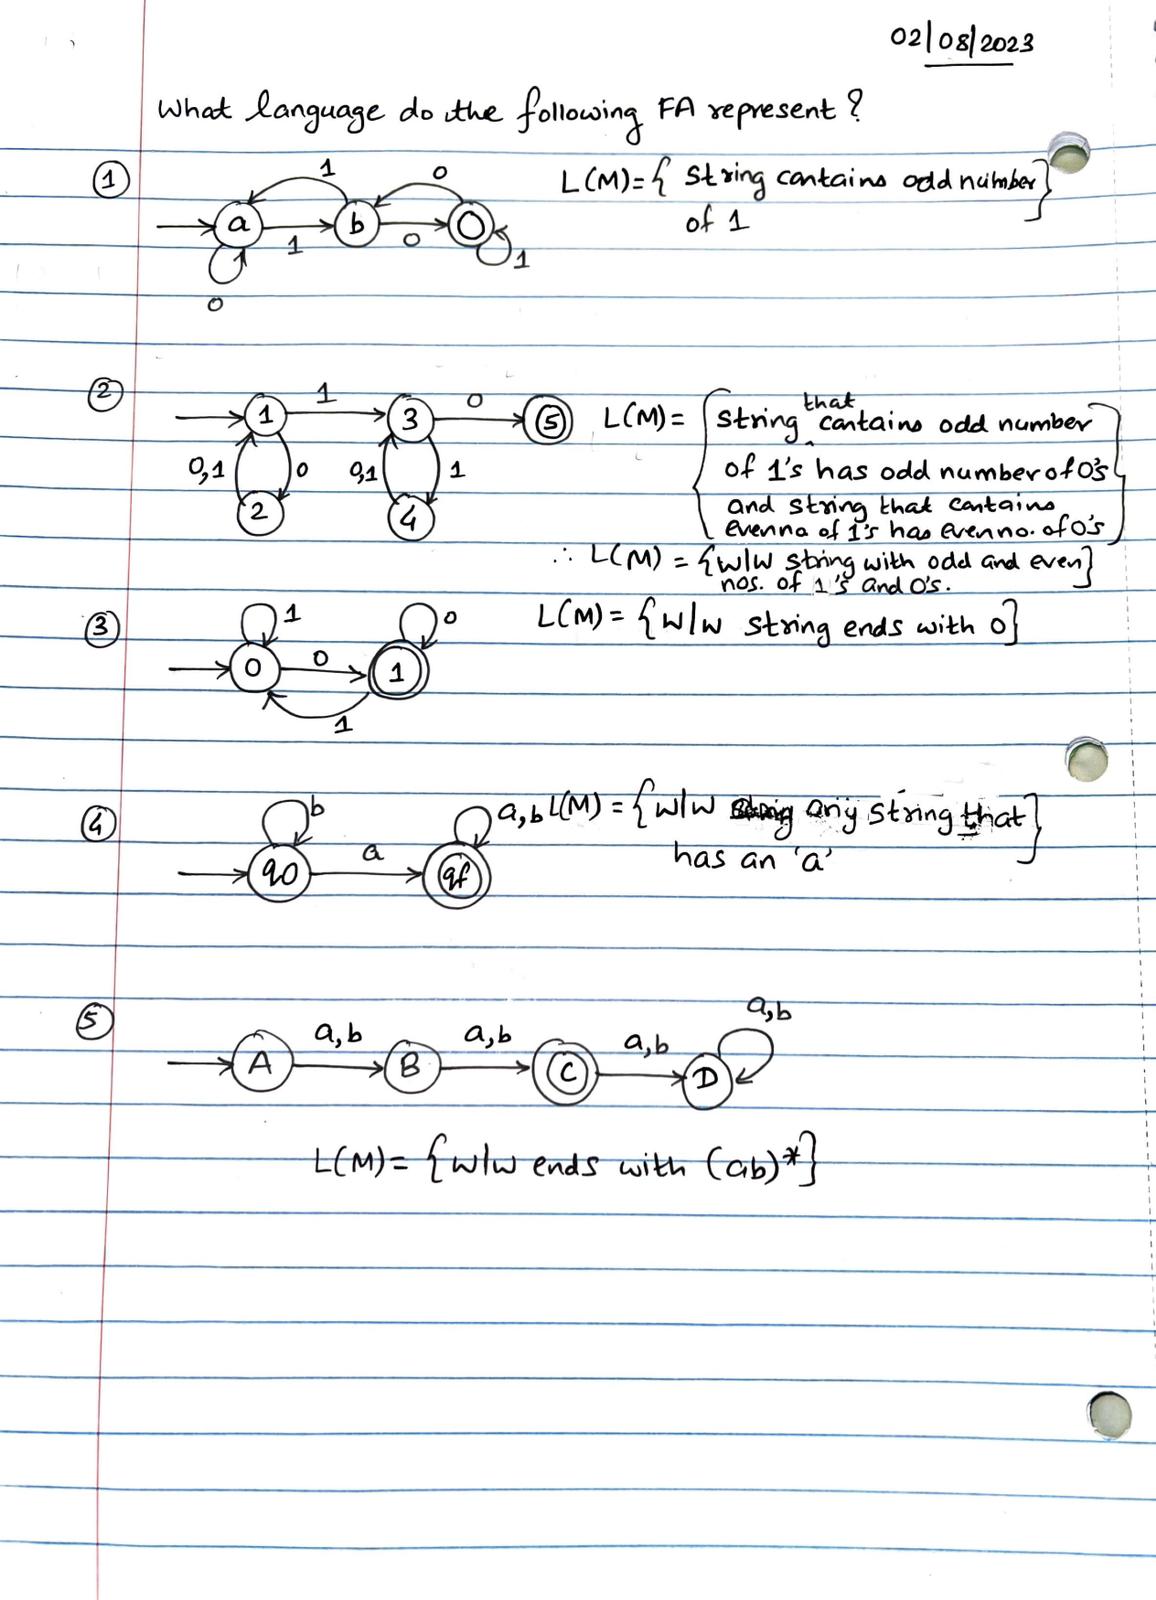 02/08/2023
What language do the following FA represent?
① L(M)={ string contains odd number}
of 1
1 0
a b
1 0 1
0
② 1 0
1 3 5 L(M)= {string that contains odd number
0,1 0 0,1 1 of 1's has odd number of 0's
2 4 and string that contains
even no of 1's has even no. of 0's}
∴ L(M) = {w/w string with odd and even}
nos. of 1's and 0's.
③ 1 0 L(M) = {w/w string ends with 0}
0 0 1
1
④ b a,b L(M) = {w/w any string that}
q0 a qf has an 'a'
⑤ a,b
a,b a,b a,b
A B C D
L(M)= {w/w ends with (ab)*}